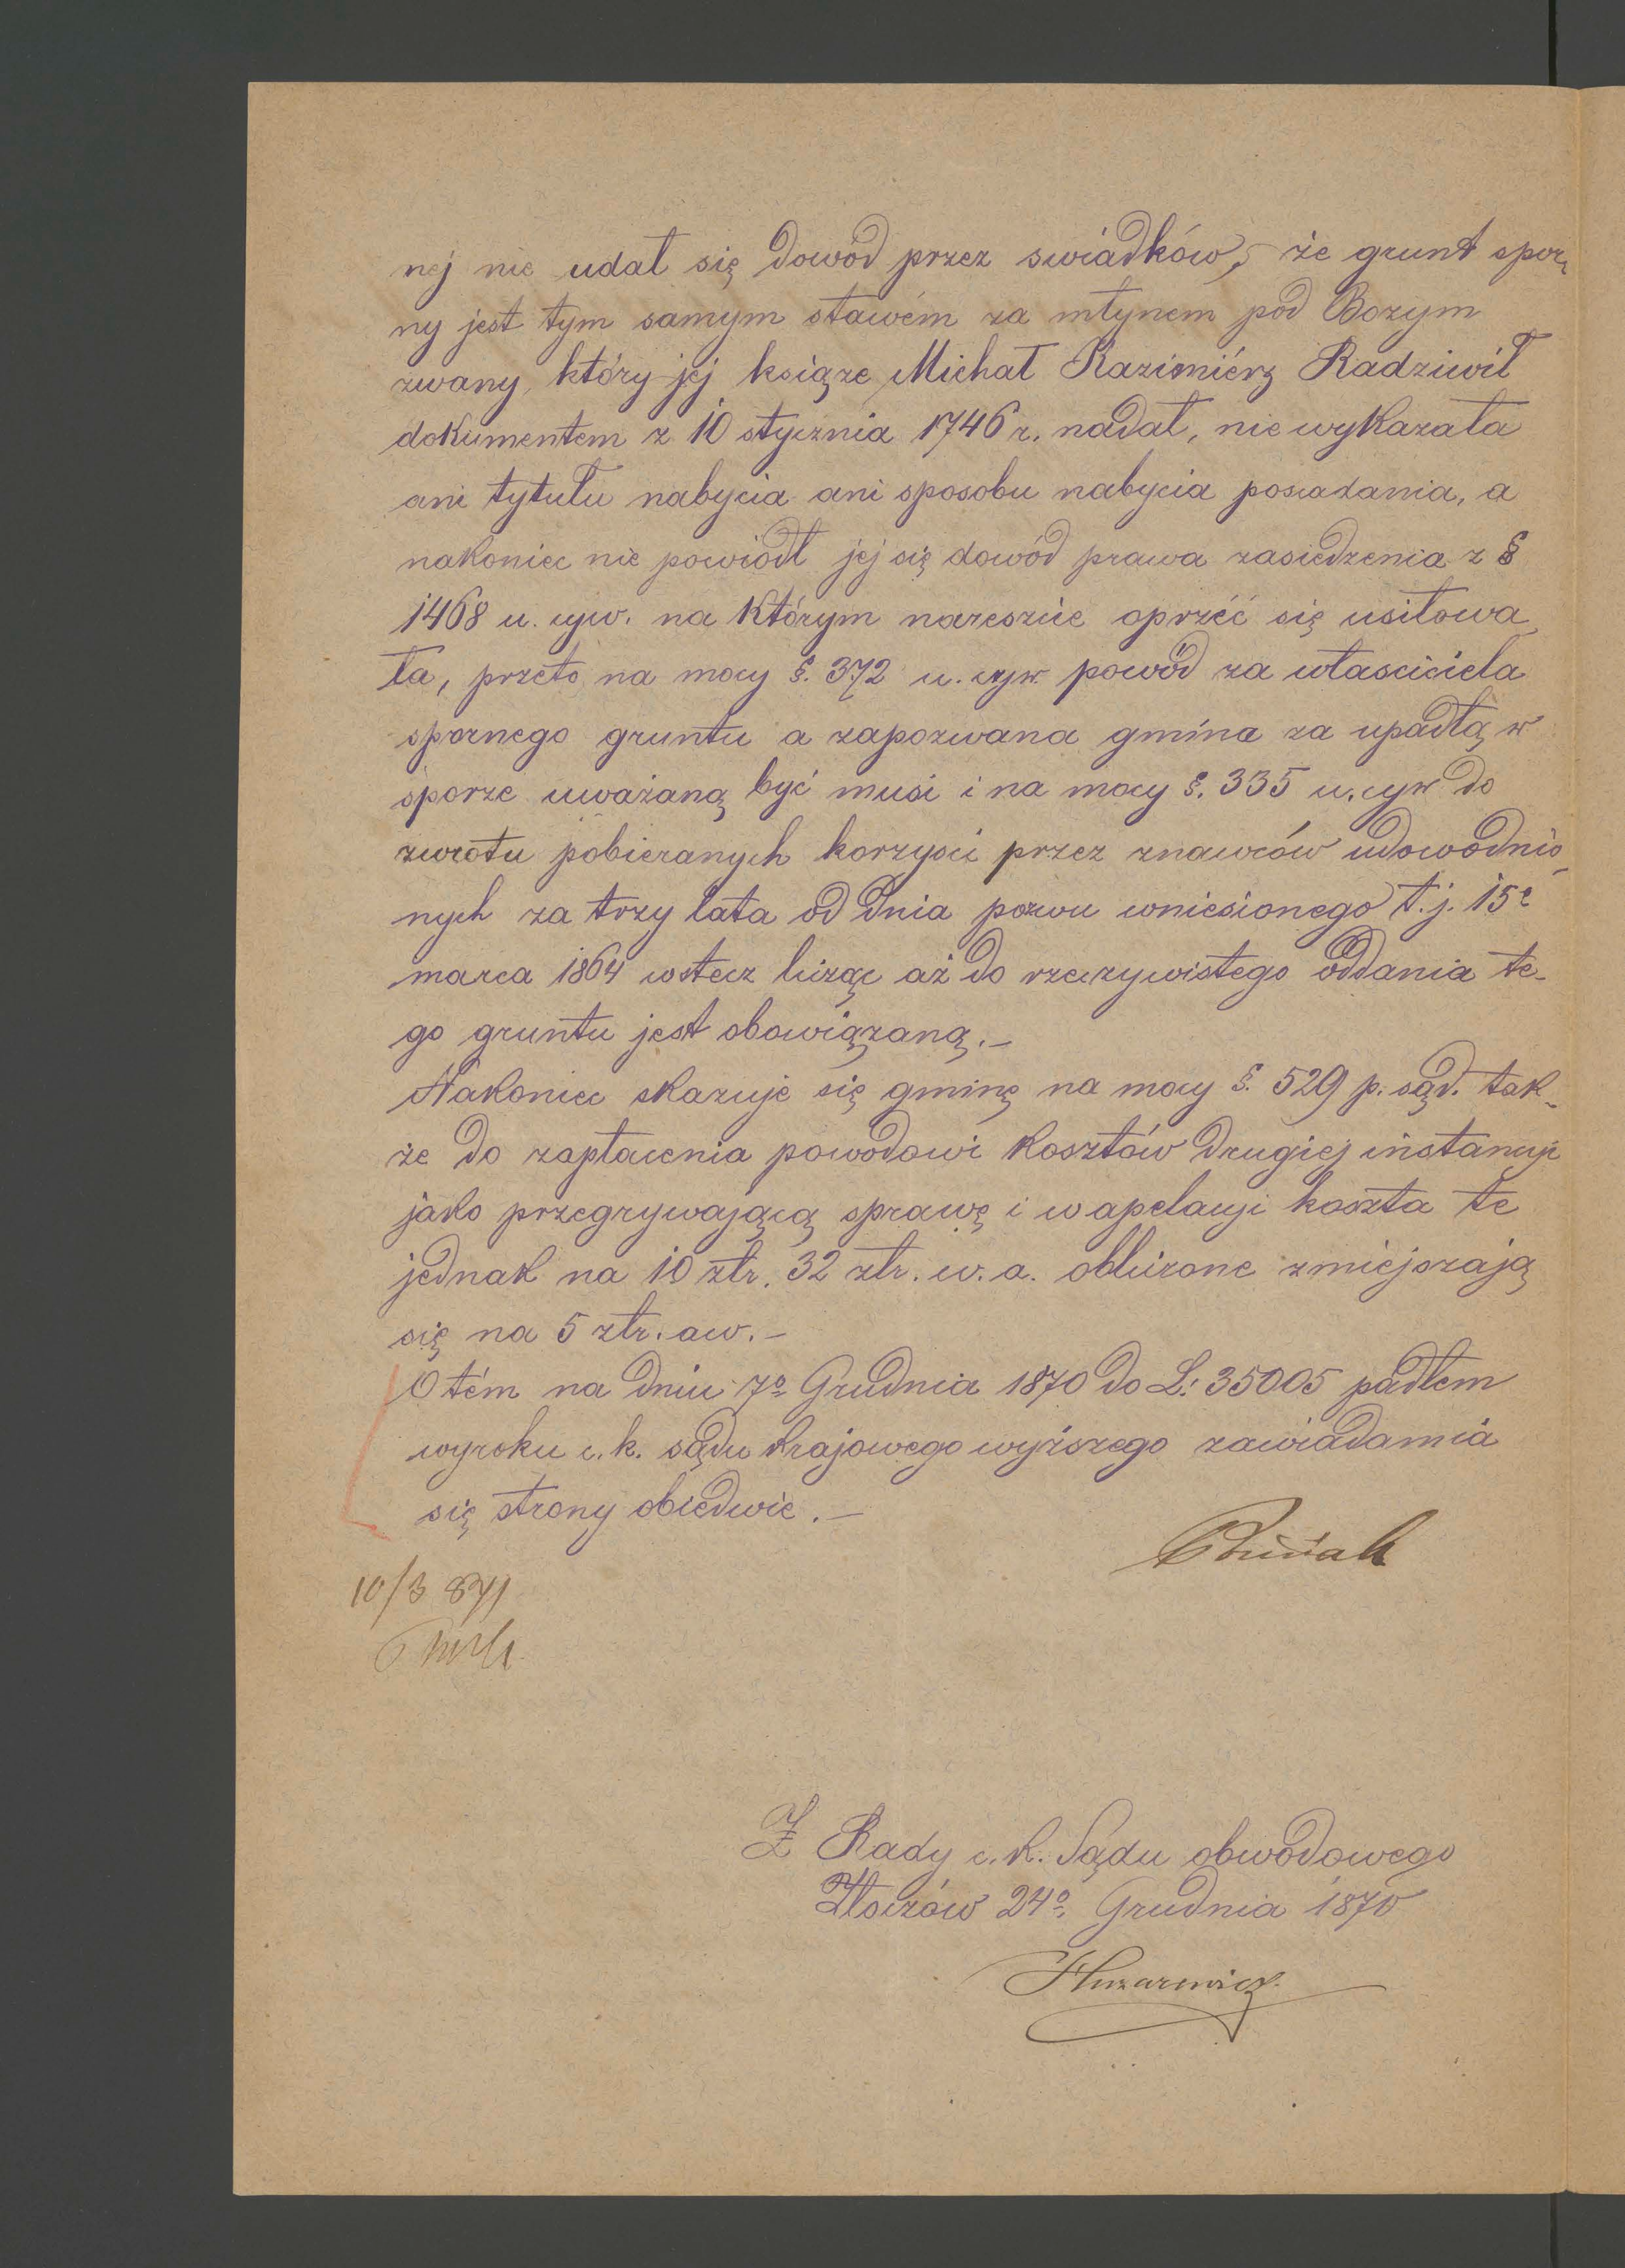 nej nie udał się dowód przez swiadków, że grunt spor-
ny jest tym samym stawém za młynem pod Bozym
zwany, który jej książe Michał Kazimiérz Radziwił
dokumentem z 10 stycznia 1746 r. nadał, nie wykazała
ani tytułu nabycia ani sposobu nabycia posiadania, a
nakoniec nie powiódł jej się dowód prawa zasiedzenia z §
1468 u. cyw. na którym nareszcie oprzéć się usiłowa-
ła, przeto na mocy §. 372 u. cyw. powód za własciciela
spornego gruntu a zapozwana gmina za upadłą w
sporze uważaną być musi i na mocy §. 335 u. cyw do
zwrotu pobieranych korzysci przez znawców udowodnio-
nych za trzy lata od dnia pozwu wniesionego t. j. 15º
marca 1864 wstecz licząc aż do rzeczywistego oddania te-
go gruntu jest obowiązaną.–
Nakoniec skazuje się gminę na mocy §. 529 p. sąd. tak-
że do zapłacenia powodowi kosztów drugiej instancji
jako przegrywającą sprawę i w apelacji koszta te
jednak na 10 złr. 32 złr. w. a. obliczone zmiejszają
się na 5 złr. aw.–
O tém na dniu 7º Grudnia 1870 do L: 35005 padłem
wyroku c. k. sądu krajowego wyższego zawiadamia
się strony obiedwie.–
10/3 871
Z Rady c. k. Sądu obwodowego
Złoczów 24º Grudnia 1870
Huzarewicz